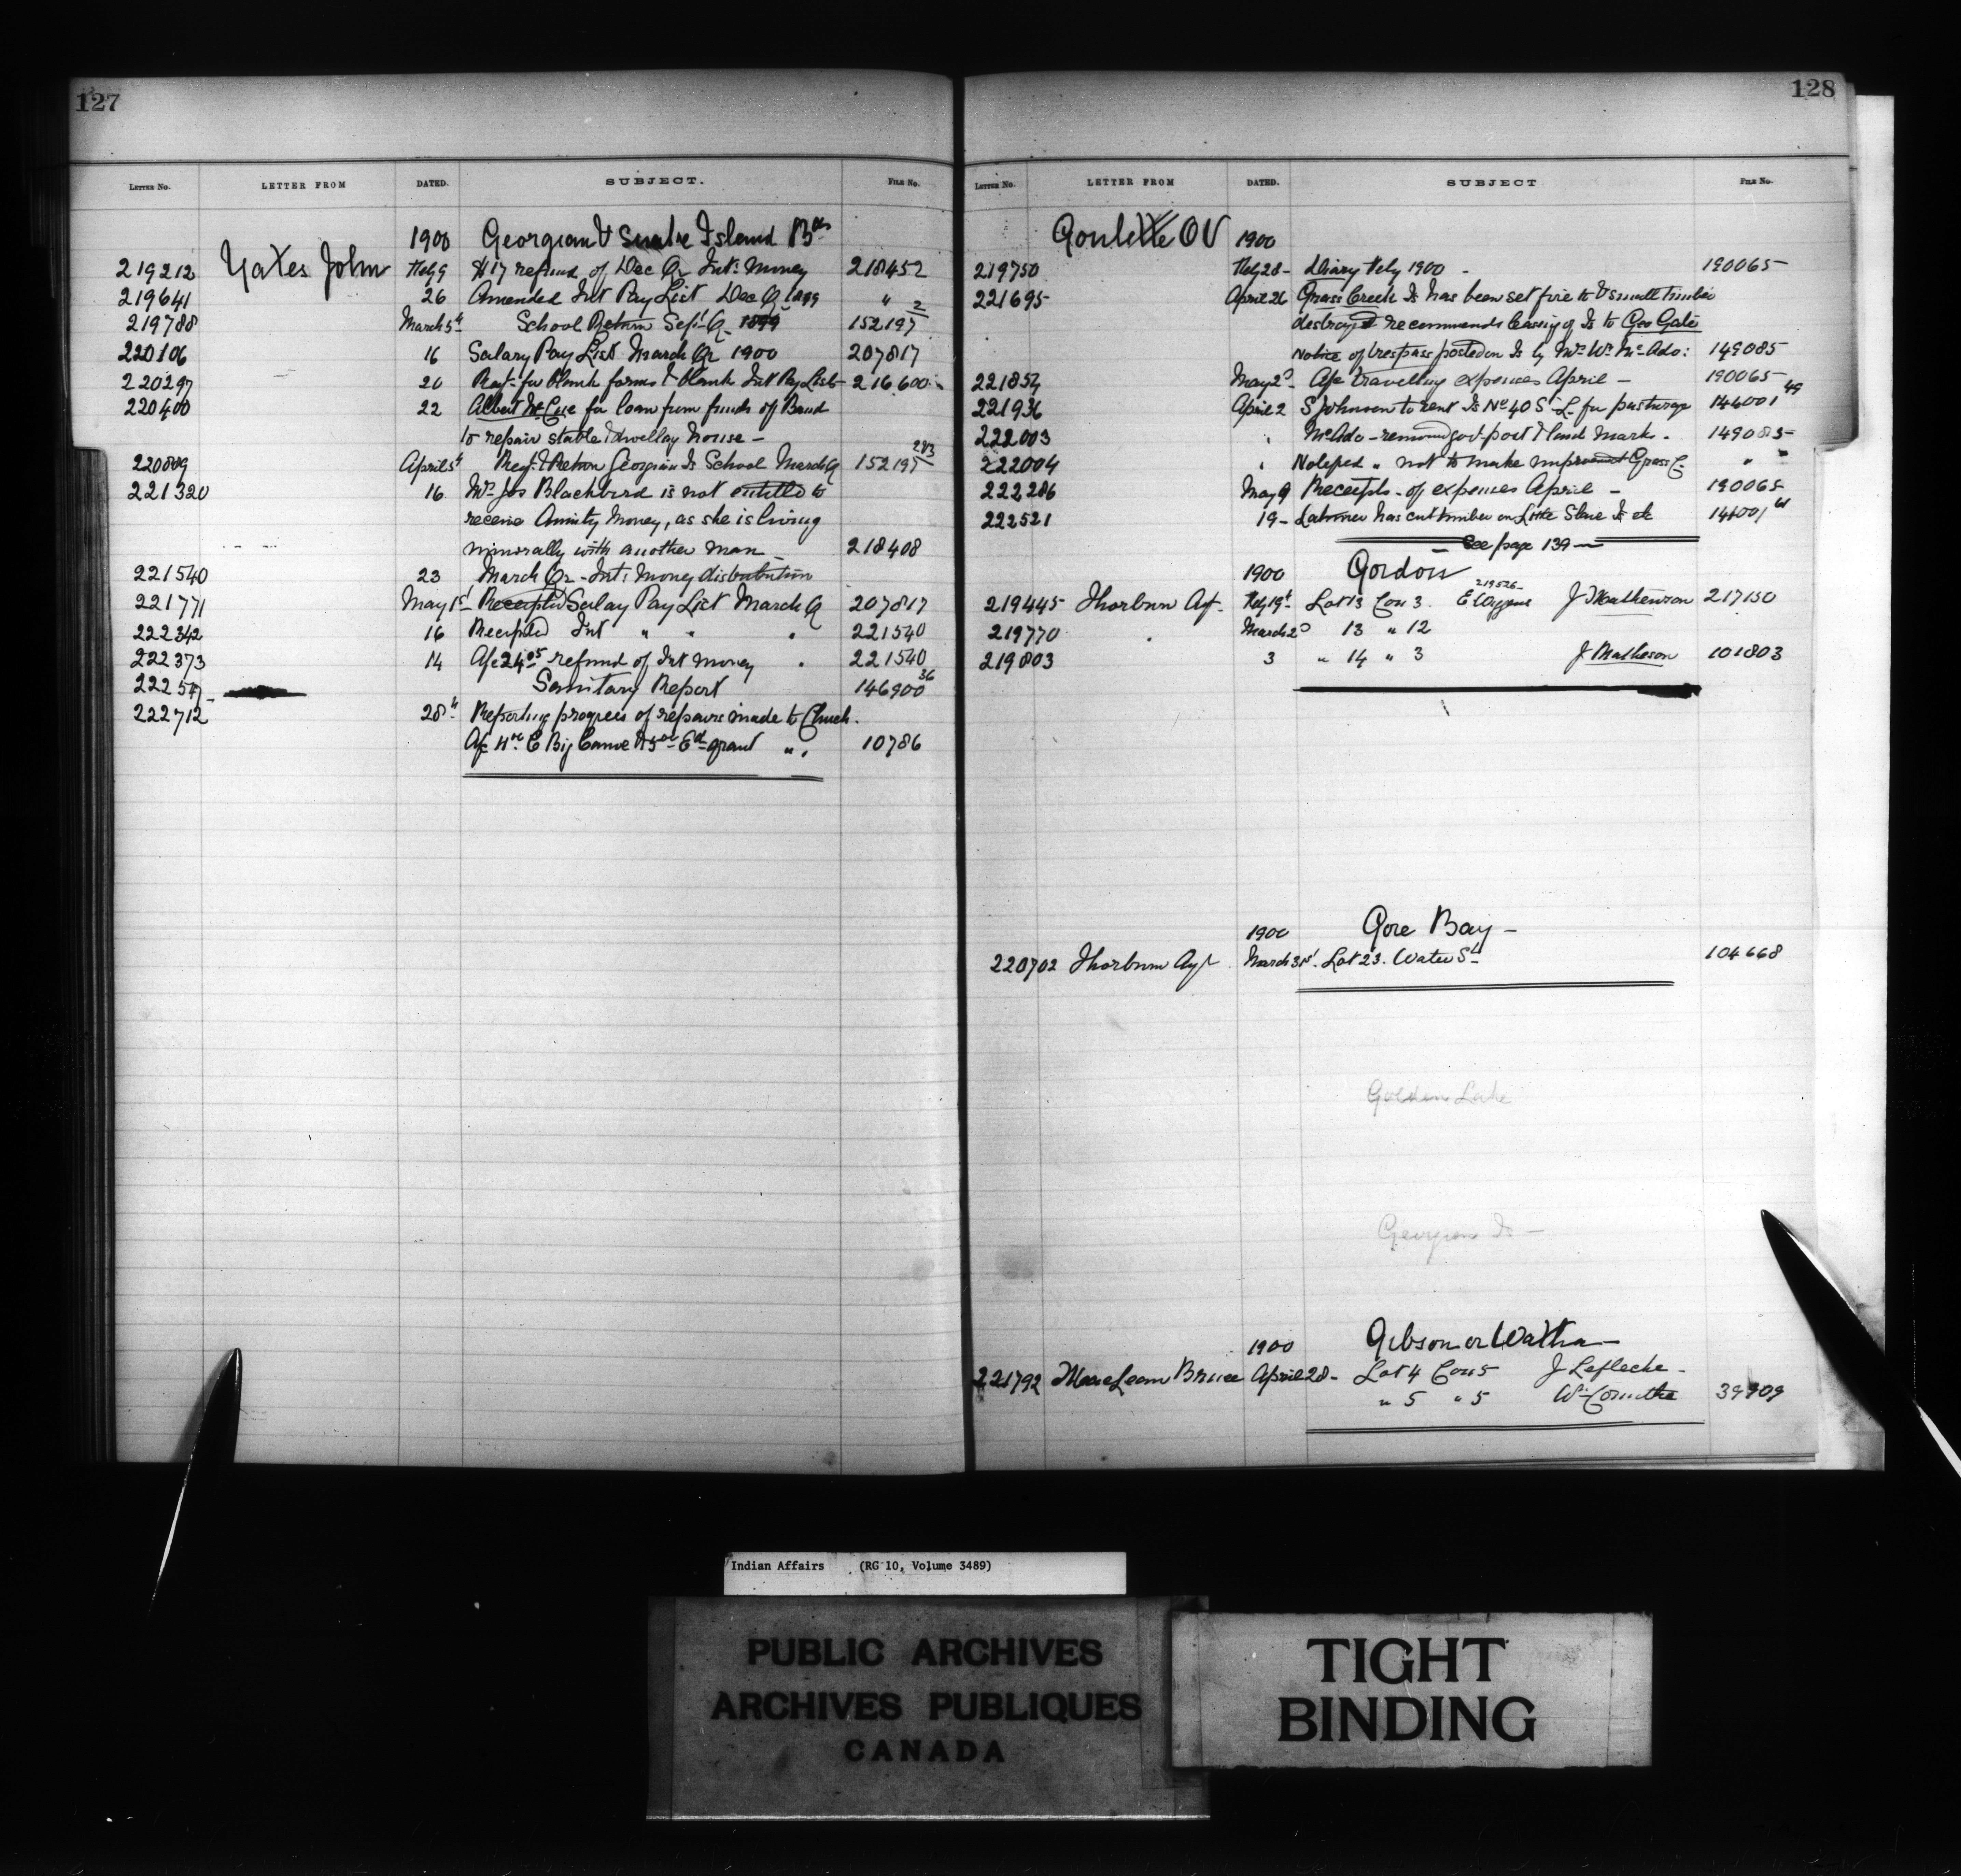 127
LETTER No. LETTER FROM DATED. SUBJECT. FILE No.
1900 Georgian & Snake Island Bds
219212 Yates John Feby 9 $17 refund of Dec Qr Int: Money 218452
219641 26 Amended Int Pay List Dec Q 1899 " 2
219788 March 5th School Return Sept Q 1899 152197
220106 16 Salary Pay List March Qr 1900 207817
220297 20 Reqt for blank forms & blank Int Pay Lists 216600
220400 22 Albert McCue for loan from funds of Band
to repair stable & dwelling house -
220809 April 5th Reqt & Return Georgian Is School March Q 152197 2&3
221320 16 Mrs Jos Blackbird is not entitled to
receive Annity Money, as she is living
immorally with another man - 218408
221540 23 March Qr - Int: Money distribution
221771 May 1st Receipted Salay Pay List March Q 207817
222342 16 Receipted Int " " " 221540
222373 14 A/c 24.05 refund of Int money 221540
222547 Sanitary Report 146900 36
222712 28th Reporting progress of repairs made to Church.
A/c C Big Canoe grant " 10786
128
LETTER No. LETTER FROM DATED. SUBJECT FILE No.
Goulette OV 1900
219750 Feby 28 - Diary Feby 1900 - 190065
221695 April 26 Grass Creek Is has been set fire to & small timber
destroyed recommends leasing of Is to Geo Gates
Notice of trespass posted on Is by Mr Wm McAdo: 149085
221854 May 2d - A/c travelling expenses April - 190065
221936 April 2 S Johnson to rent Is No 40 S L for pasturage 146001 49
222003 " McAdo - removing govt post & land mark. 149085
222004 " Notified " not to make improvemt Grass C. " "
222286 May 9 Receipts - of expenses April - 190065
222521 19 - has cut timber on Little Is etc 146001 61
See page 139 -
1900 Gordon
219526
219445 Thorburn Agt. Feby 19th Lot 13 Con 3. J Mathewson 217150
219770 " March 2d 13 " 12
219803 3 " 14 " 3 J Matheson 101803
1900 Gore Bay -
220702 Thorburn Agt March 31st. Lot 23. Water St 104668
Golden Lake
Georgian Is -
1900 Gibson or Watha -
221792 MacLean Bruce April 28 - Lot 4 Con 5 J Lafleche -
" 5 " 5 Wm 39909
Indian Affairs (RG 10, Volume 3489)
PUBLIC ARCHIVES
ARCHIVES PUBLIQUES
CANADA
TIGHT
BINDING